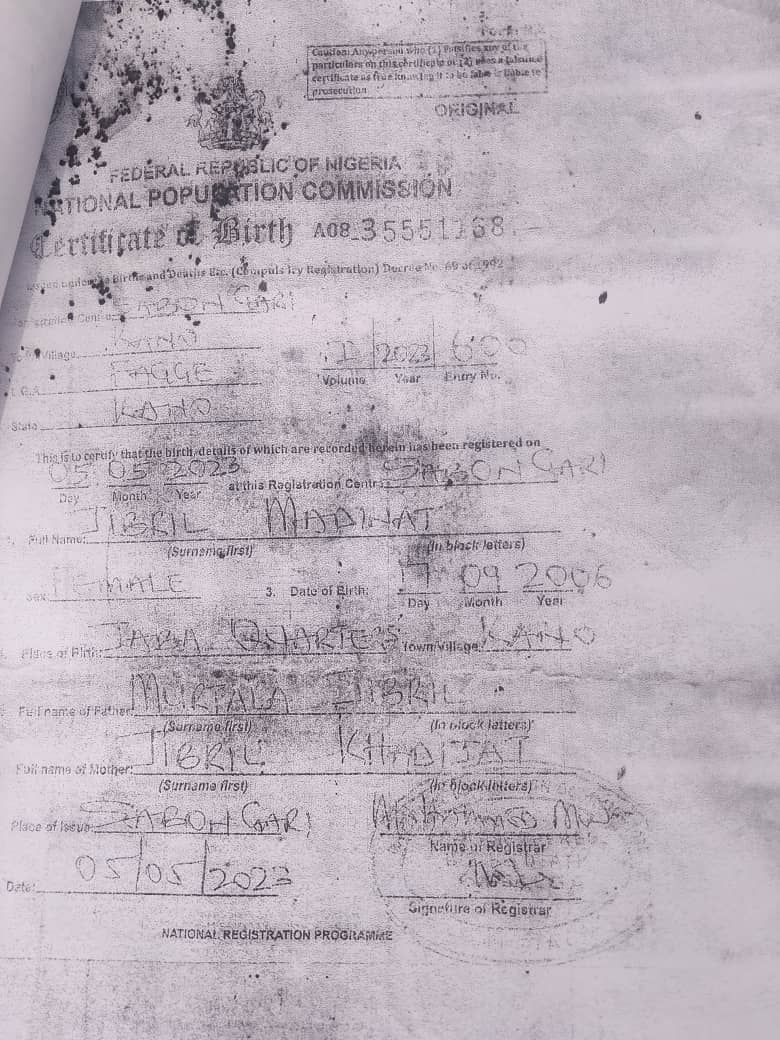 Caution: Any person who (1) Falsifies any of the
particulars on this certificate or (2) uses a falsified
certificate as true knowing it to be false is liable to
prosecution
ORIGINAL
FEDERAL REPUBLIC OF NIGERIA
NATIONAL POPULATION COMMISSION
Certificate of Birth A08 35551168
Issued under the Births and Deaths Etc. (Compulsory Registration) Decree No. 69 of 1992
Registration Centre SABON GARI
Town/Village KANO
II 2023 600
L.G.A. FAGGE
Volume Year Entry No.
State KANO
This is to certify that the birth, details of which are recorded herein has been registered on
05 05 2023 at this Registration Centre SABON GARI
Day Month Year
1. Full Name: JIBRIL MADINAT
(Surname first) (In block letters)
Sex: FEMALE 3. Date of Birth: 17 09 2006
Day Month Year
Place of Birth: JABA QUARTERS Town/Village KANO
Full name of Father: MURTALA JIBRIL
(Surname first) (In block letters)
Full name of Mother: JIBRIL KHADIJAT
(Surname first) (In block letters)
Place of Issue: SABON GARI
Name of Registrar
Date: 05/05/2023
Signature of Registrar
NATIONAL REGISTRATION PROGRAMME